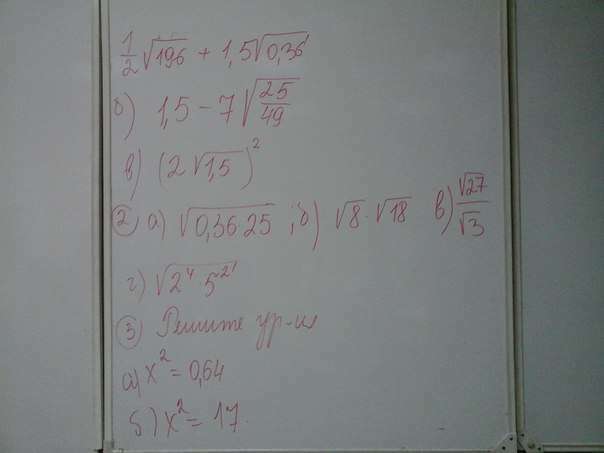 1/2 √196 + 1,5√0,36
б) 1,5 − 7√25/49
в) (2√1,5)²
② а) √0,36·25 ; б) √8·√18 в) √27/√3
г) √2⁴·5²
③ Решите ур-ия
а) x² = 0,64
б) x² = 17.